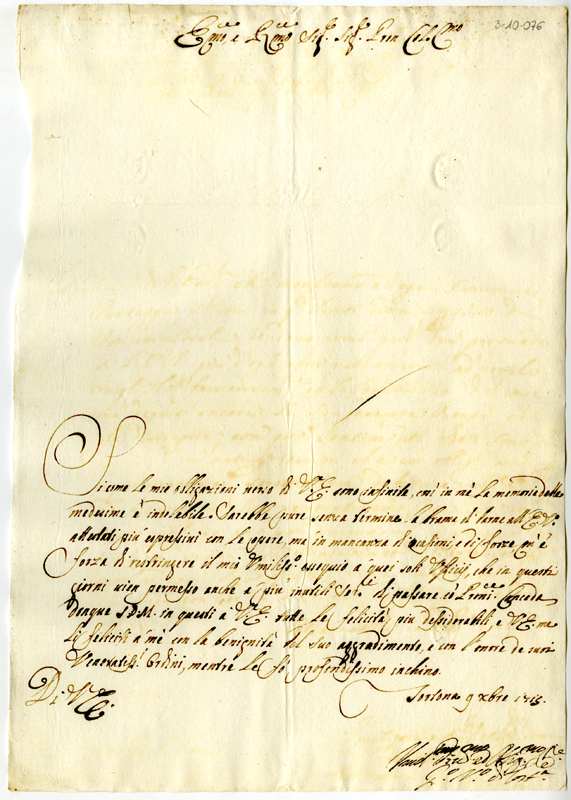 3-10-076
Em.o e R.mo Sig.r Sig.r Pron Col.mo
Si come le mie obligazioni verso di V.E. sono infinite, così in mè la memoria delle
medesime è indelebile. Sarebbe pure senza termine la brama di darne all'E.V.
attestati più espressivi con le opere, ma in mancanza d'occasioni e di forze m'è
forza di restringere il mio Umiliss.o ossequio a quei soli Ufficij, che in questi
giorni vien permesso anche a i più inutili Ser.i di passare co' Pron.i Conceda
dunque S.D.M. in questi a V.E. tutte le felicità più dessiderabili, e V.E. me
li feliciti a mè con la benignità del suo aggradimento, e con l'onore de suoi
Veneratiss.i Ordini, mentre le fò profondissimo inchino.
Di V.E.
Tortona 9 xbre 1713.